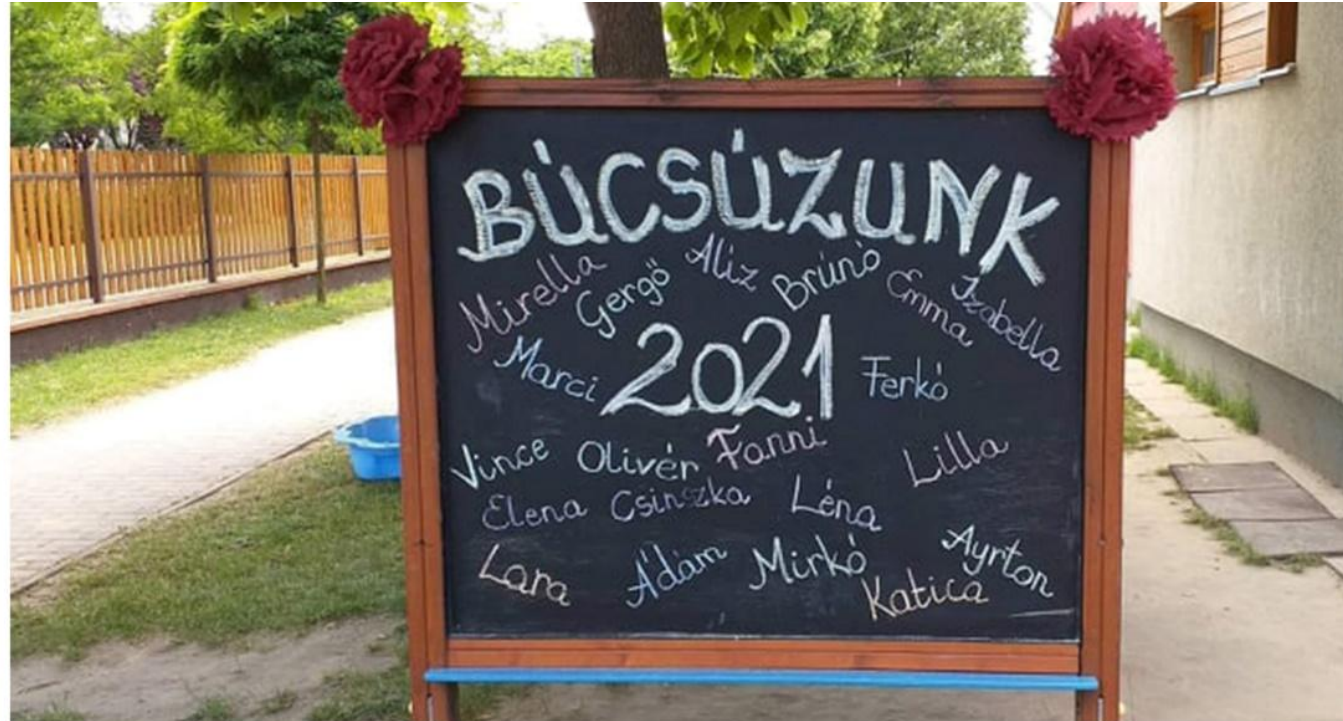 BÚCSÚZUNK
Mirella Gergő Aliz Brúnó Emma Izabella
Marci 2021 Ferkó
Vince Olivér Fanni Lilla
Elena Csinszka Léna
Lara Ádám Mirkó Katica Ayrton